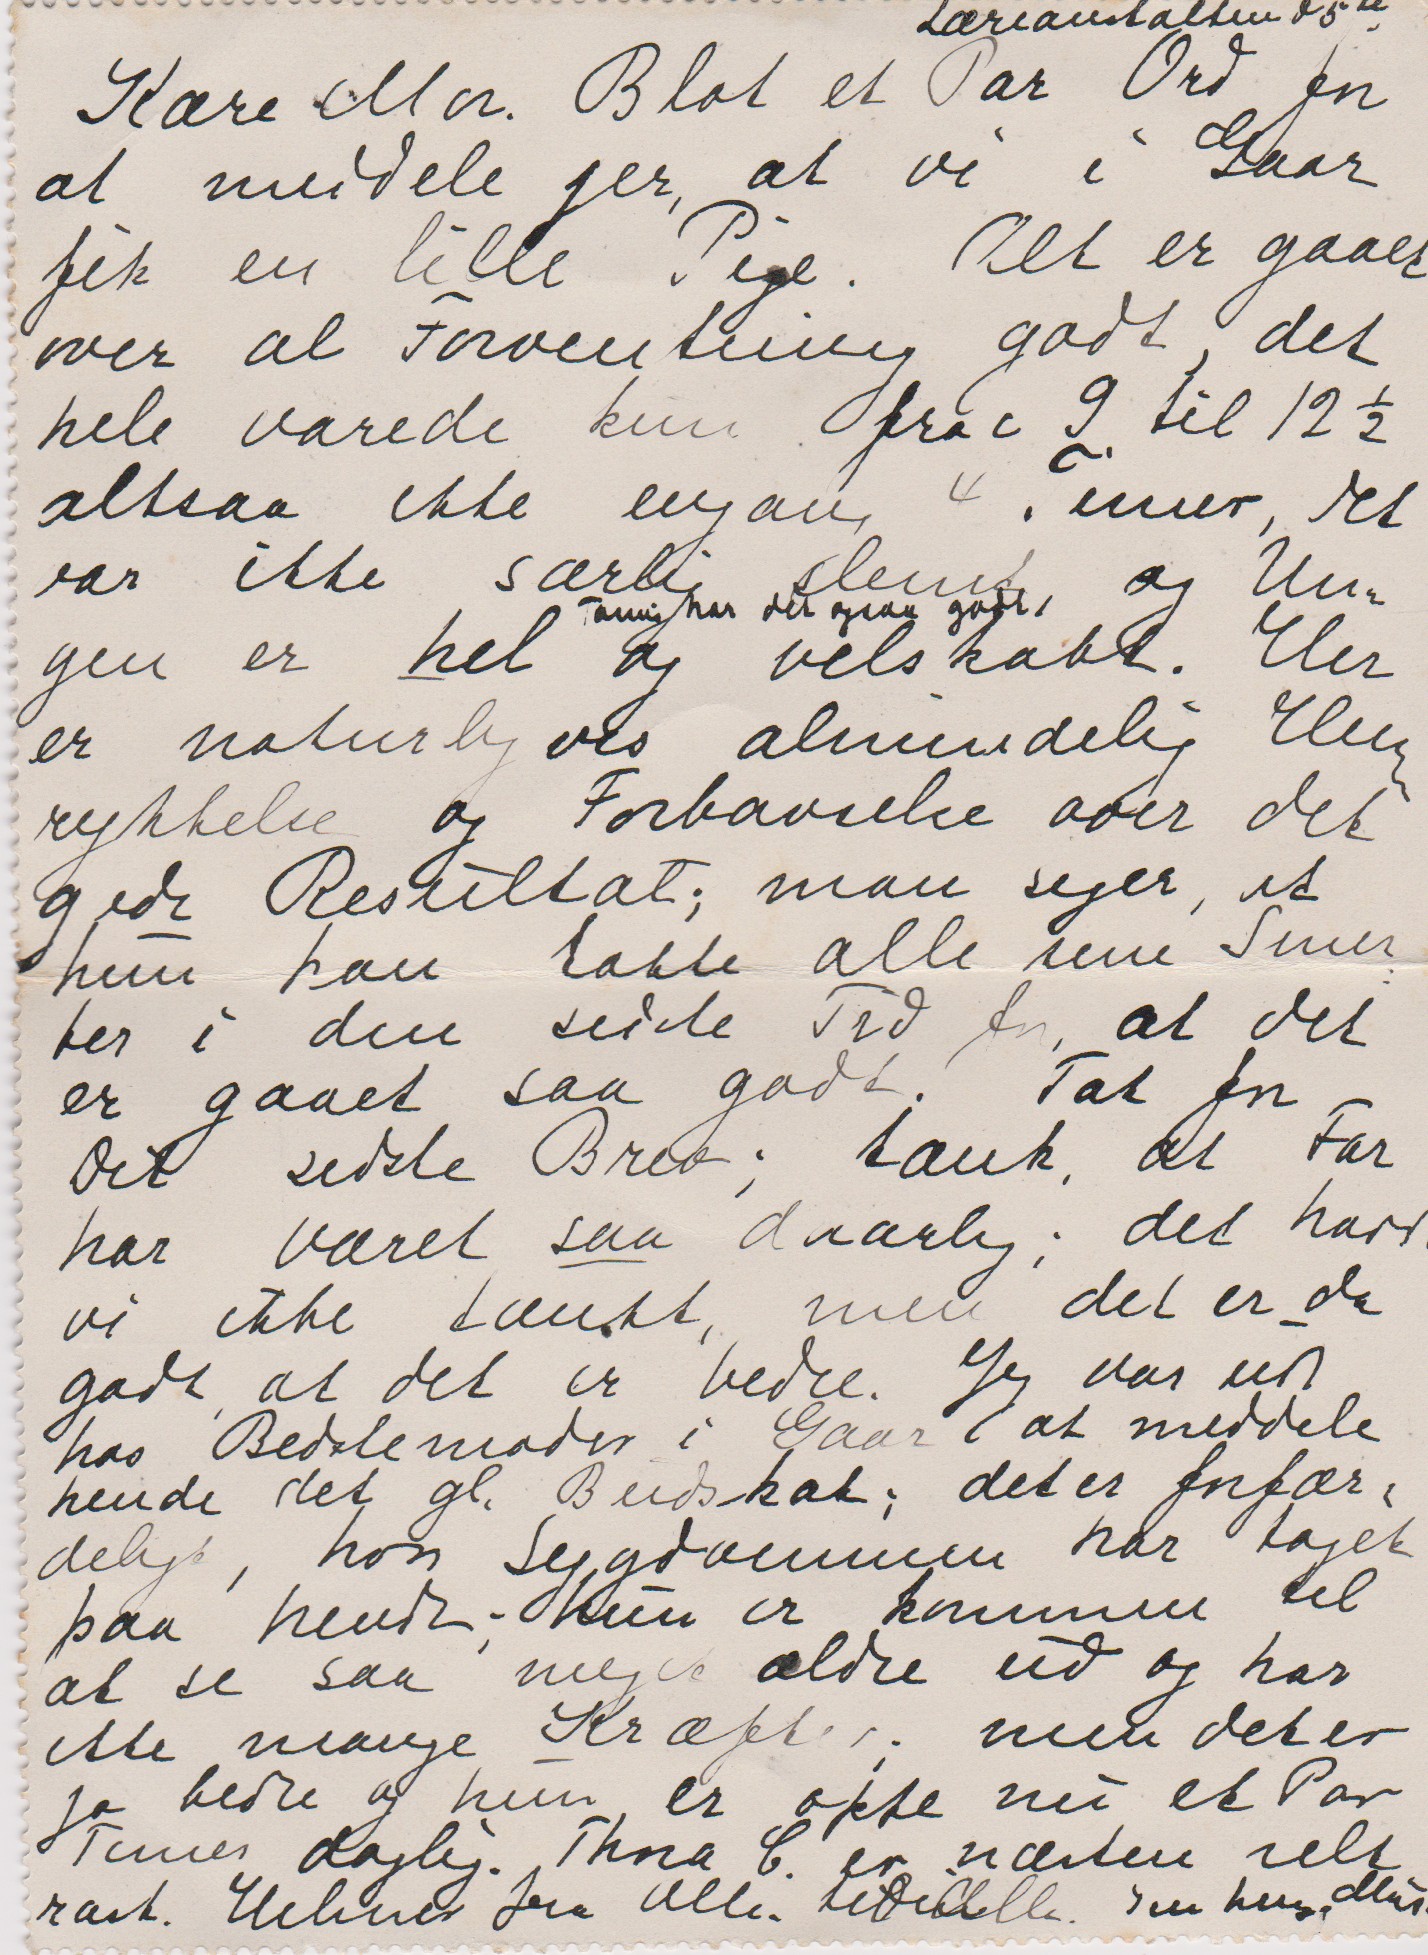 Læreanstalten d 5te
Kære Mor. Blot et Par Ord for
at meddele jer, at vi i Gaar
fik en lille Pige. Alt er gaaet
over al Forventning godt, det
hele varede kun fra c 9 til 12 ½
altsaa ikke engang 4 Timer, det
var ikke særlig slemt, og Un-
Tanning har det ogsaa godt,
gen er hel og velskabt. Her
er naturligvis almindelig Hen
rykkelse og Forbavselse over det
gode Resultat; man siger, at
hun kan takke alle sine Smer
ter i den sidste Tid for, at det
er gaaet saa godt. Tak for
Dit sidste Brev; tænk, at Far
har været saa daarlig; det havde
vi ikke tænkt, men det er da
godt, at det er bedre. Jeg var ud
hos Bedstemoder i Gaar at meddele
hende det gl. Budskab; det er forfær-
deligt, hvor Sygdommen har taget
paa hende; hun er kommen til
at se saa meget ældre ud og har
ikke mange Kræfter; men det er
jo bedre og hun er oppe nu et Par
Timer daglig. Thora C. er næsten helt
rask. Hilsner fra Alle til Alle. Din heng. Mus.